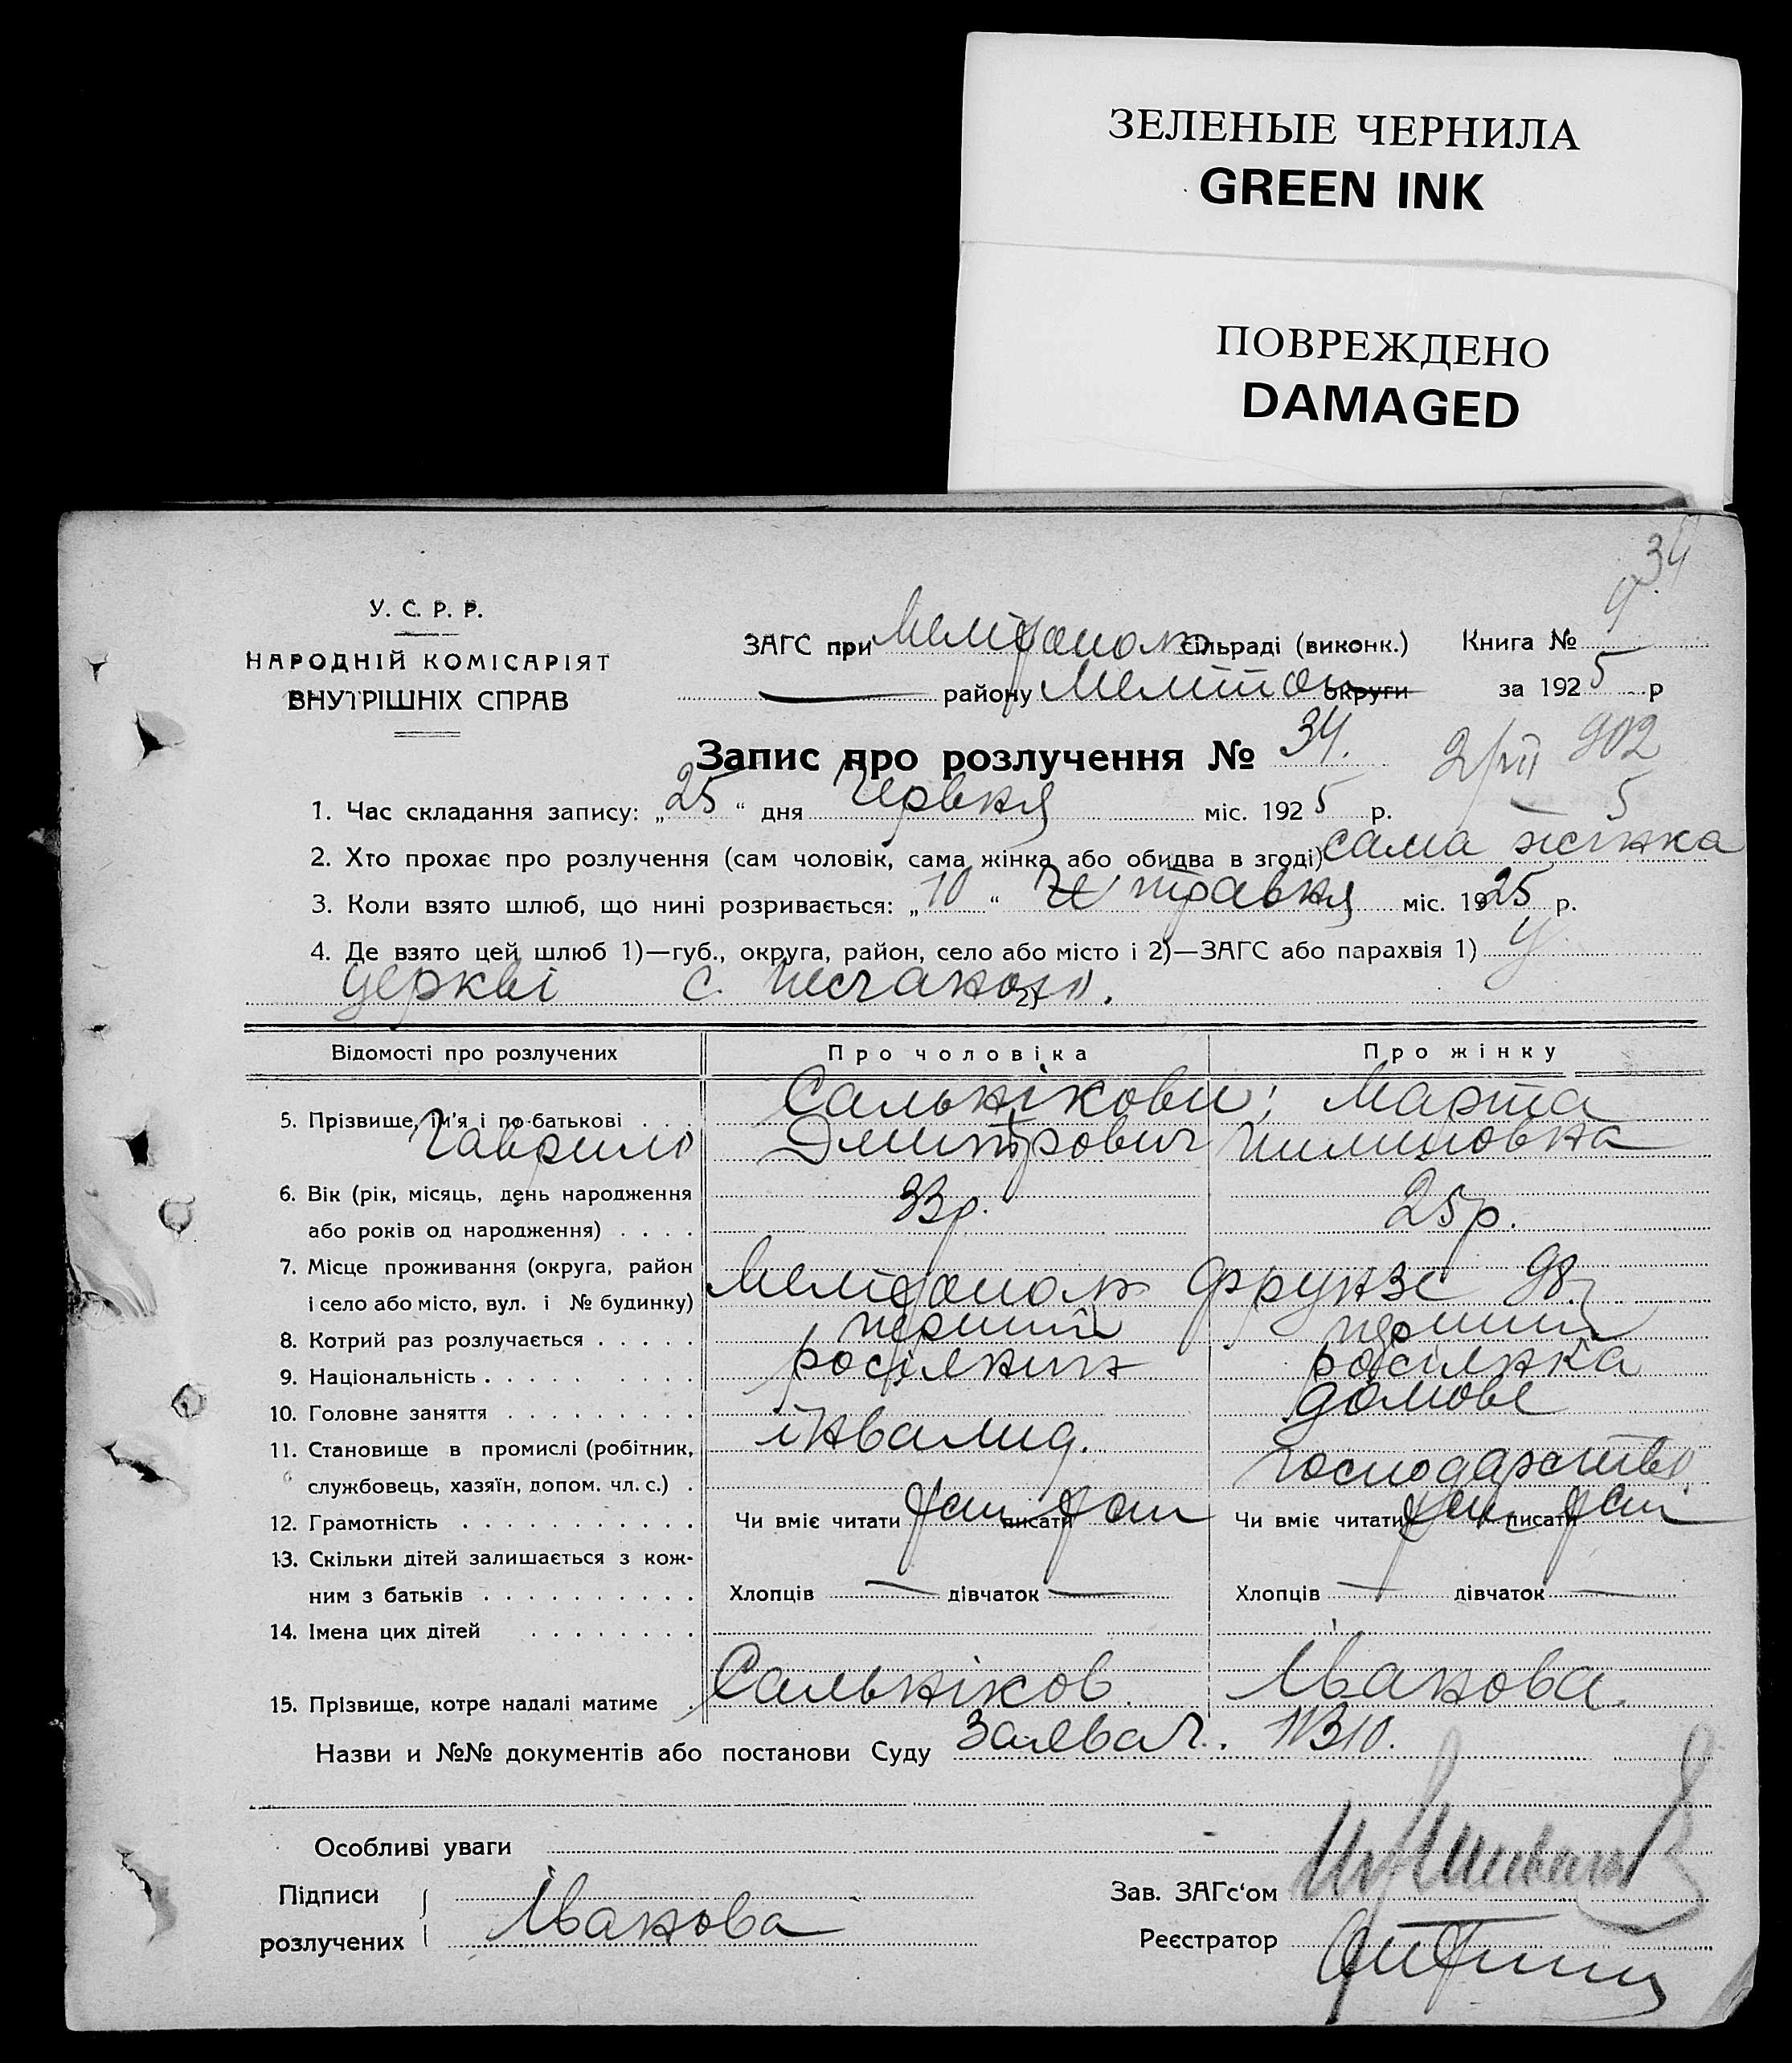 ЗЕЛЕНЫЕ ЧЕРНИЛА
GREEN INK
ПОВРЕЖДЕНО
DAMAGED
34
У. С. Р. Р.
НАРОДНІЙ КОМІСАРІЯТ
ВНУТРІШНІХ СПРАВ
ЗАГС при Мелітополь сільраді (виконк.) Книга №
району Мелітоп округи за 1925 р
Запис про розлучення № 34.
2/VII 902
5
1. Час складання запису: „25“ дня Червня міс. 1925 р.
2. Хто прохає про розлучення (сам чоловік, сама жінка або обидва в згоді) сама жінка
3. Коли взято шлюб, що нині розривається: „10“ травня міс. 1925 р.
4. Де взято цей шлюб 1)—губ., округа, район, село або місто і 2)—ЗАГС або парахвія 1) У
церкві с. Песчаное. 2)
Відомості про розлучених Про чоловіка Про жінку
5. Прізвище, ім'я і по-батькові . . . Сальнікови; Марта
Гаврило Дмитрович Пилиповна
6. Вік (рік, місяць, день народження
або років од народження) . . . . 33р. 25р.
7. Місце проживання (округа, район
і село або місто, вул. і № будинку) Мелітополь Фрунзе 98.
8. Котрий раз розлучається . . . . . перший перший
9. Національність . . . . . . . . . росіянин росіянка
10. Головне заняття . . . . . . . . . домове
11. Становище в промислі (робітник, інвалид.
службовець, хазяїн, допом. чл. с.) . господарство
12. Грамотність . . . . . . . . . . . Чи вміє читати так писати так Чи вміє читати так писати так
13. Скільки дітей залишається з кож-
ним з батьків . . . . . . . . . . Хлопців — дівчаток — Хлопців — дівчаток —
14. Імена цих дітей . . . . . . . .
15. Прізвище, котре надалі матиме Сальніков. Іванова.
Назви и №№ документів або постанови Суду Заява ч.
Особливі уваги
Підписи
розлучених Іванова
Зав. ЗАГс'ом
Реєстратор